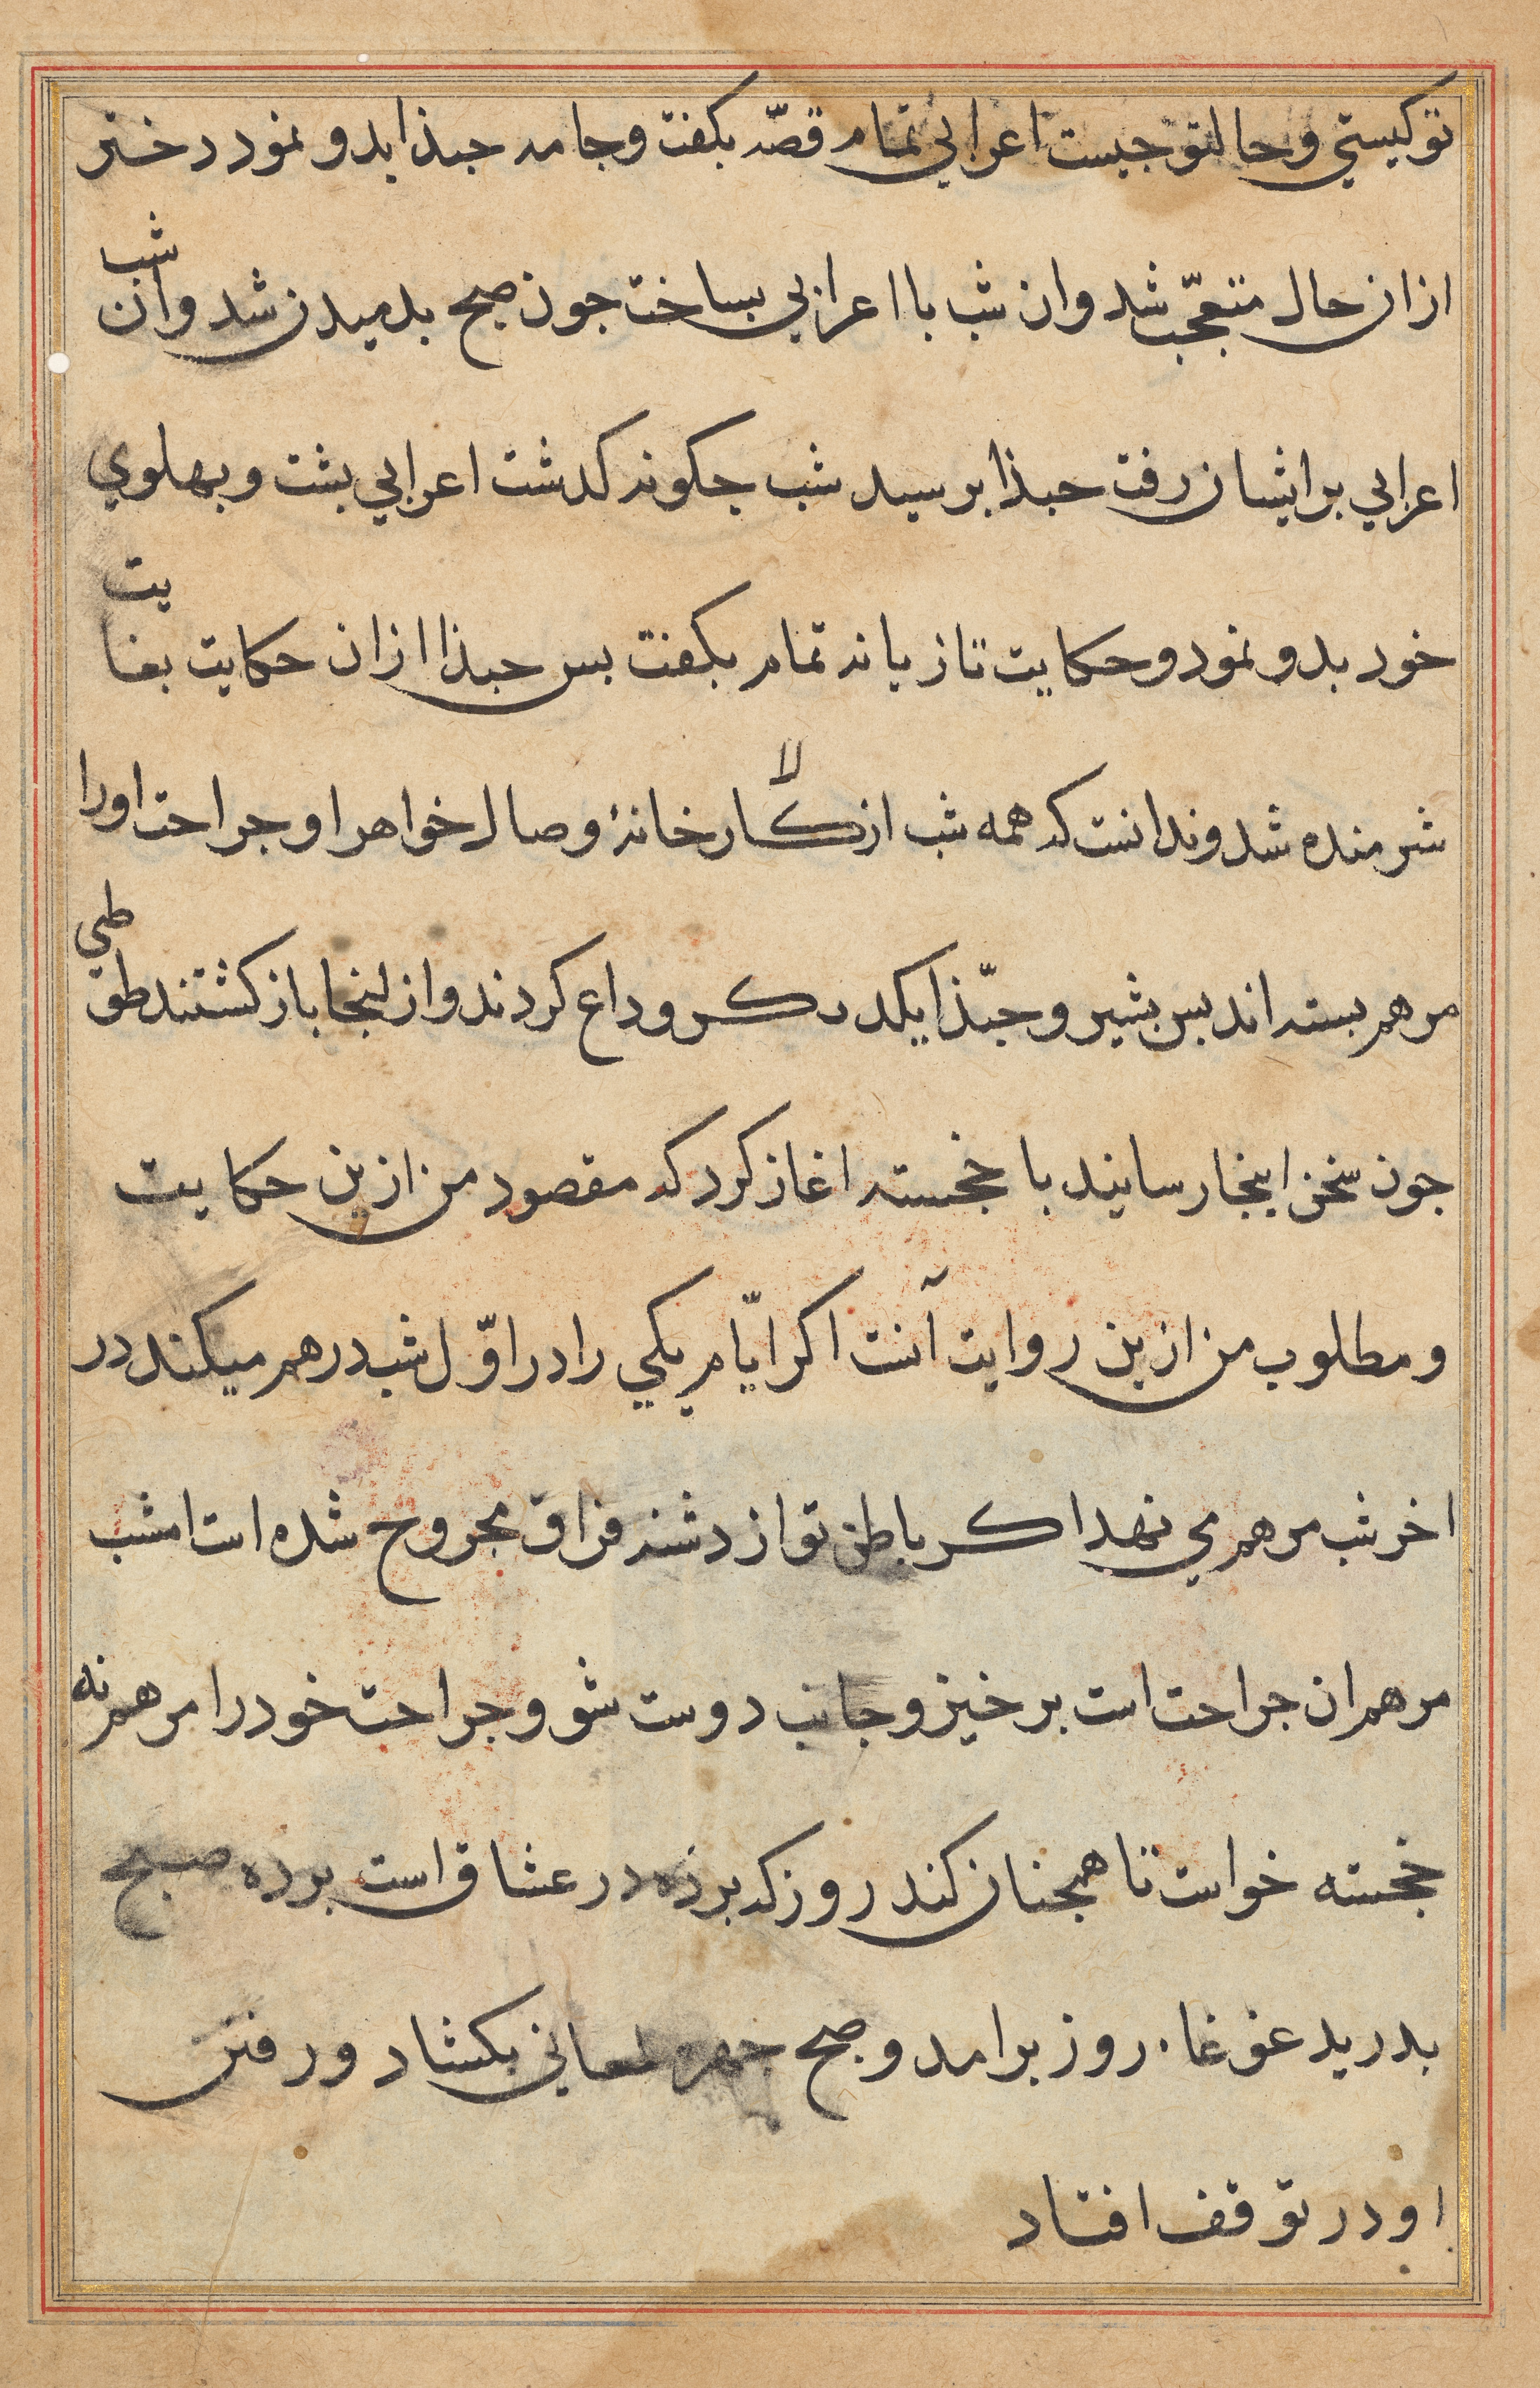 تو کیستي و حال تو جیست اعرابي تمام قصّه بکفت و جامه جبذا بدو نمود دختر
ازان حال متعجّب شد وان شب با اعرابي بساخت جون صبح بدمیدن شد وان شب
اعرابي بر ایشان رفت حبذا برسید شب جکونه کدشت اعرابي بشت و بهلوي
خود بدو نمود و حکایت تازیانه تمام بکفت بس حبذا ازان حکایت بغایت
شرمنده شد و ندانست که همه شب از کارخانهٔ وصال خواهر او جراحت اورا
مرهم بسته اند بس بشیر و حبّذا یکدیکر وداع کردند و از اینجا باز کشتند طوطي
جون سخن اینجا رسانید با خجسته اغاز کرد که مقصود من ازین حکایت
و مطلوب من ازین روایت آنست اکر ایّام یکي را در اوّل شب درهم میکند در
اخر شب مرهم مي نهد اکر باطن تو از دشنه فراق مجروح شده است امشب
مرهم ان جراحت است بر خیز و جانب دوست شو و جراحت خود را مرهم نه
خجسته خواست تا همجنان کند روز که برده در عشاق است برده صبح
بدرید غوغاء روز برامد و صبح جهره لمعاني بکشاد و رفتن
او در توقف افتاد